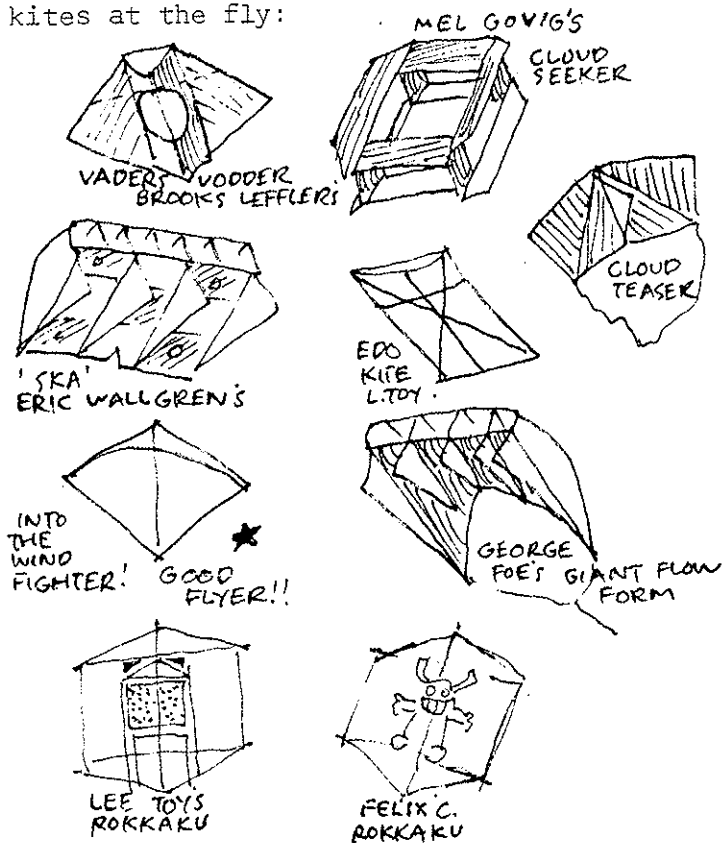 kites at the fly:
MEL GOVIG'S
CLOUD
SEEKER
VADERS VODDER
BROOKS LEFFLER'S
CLOUD
TEASER
'SKA'
ERIC WALLGREN'S
EDO
KITE
L.TOY.
INTO
THE
WIND
FIGHTER!
GOOD
FLYER!!
GEORGE
FOE'S GIANT FLOW
FORM
LEE TOY'S
ROKKAKU
FELIX C.
ROKKAKU